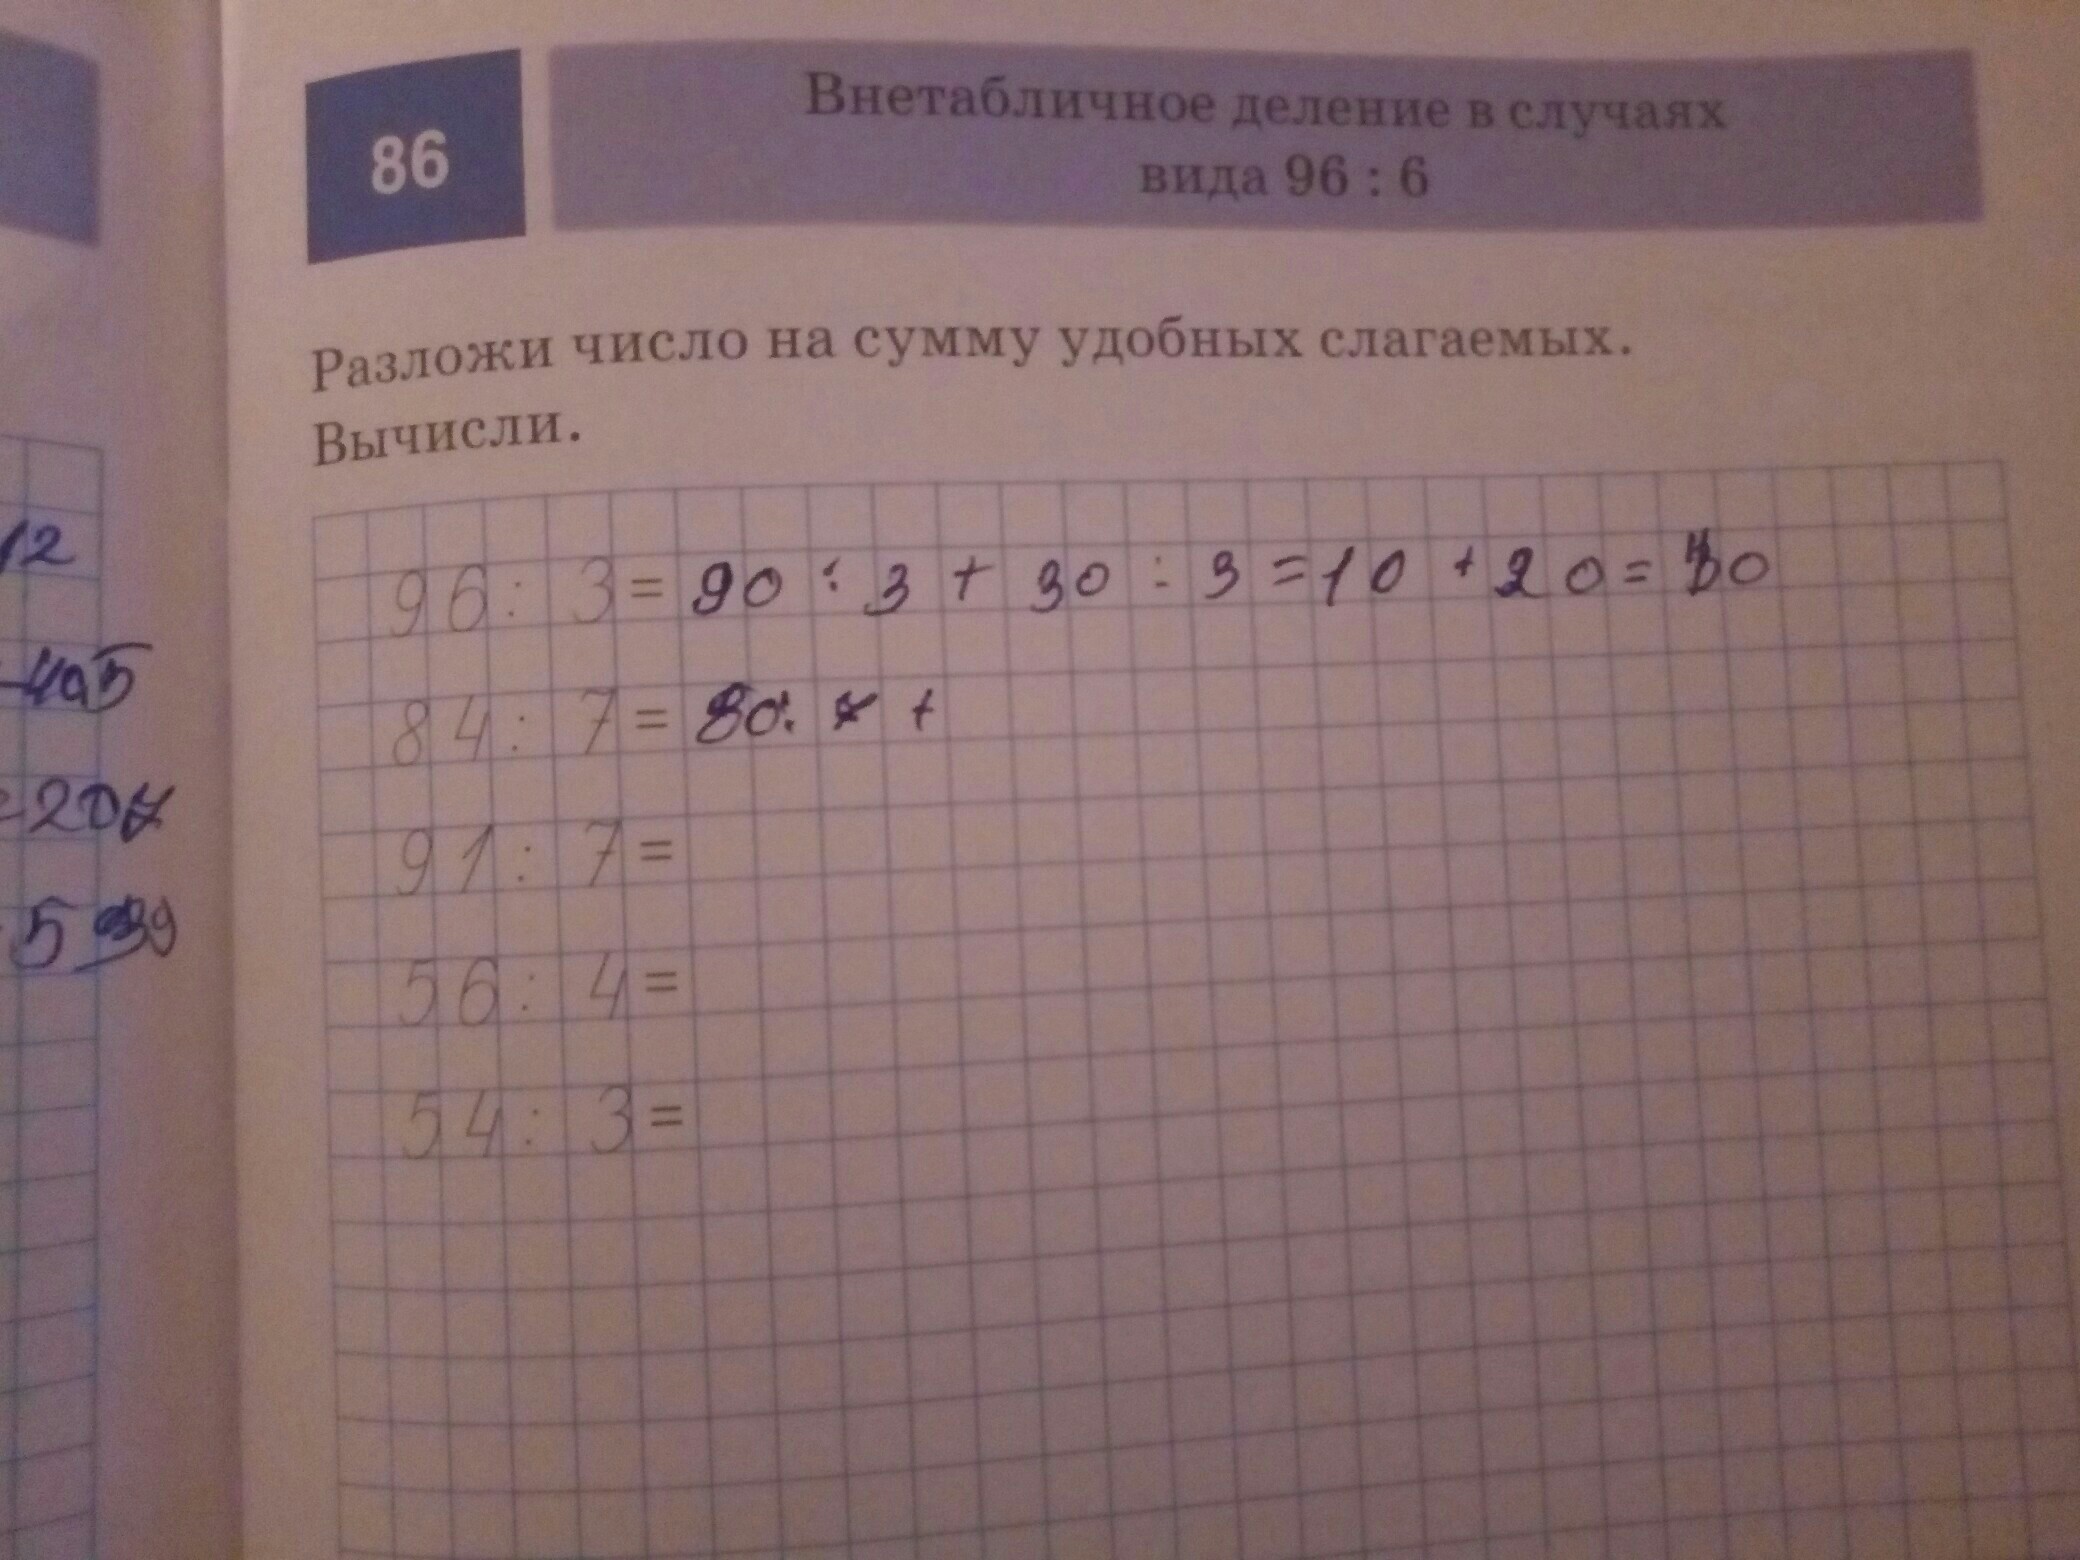 86
Внетабличное деление в случаях
вида 96 : 6
Разложи число на сумму удобных слагаемых.
Вычисли.
12
96 : 3 = 90 : 3 + 30 : 3 = 10 + 20 =
405
84 : 7 = 80 : 7 +
= 207
91 : 7 =
5 39
56 : 4 =
54 : 3 =